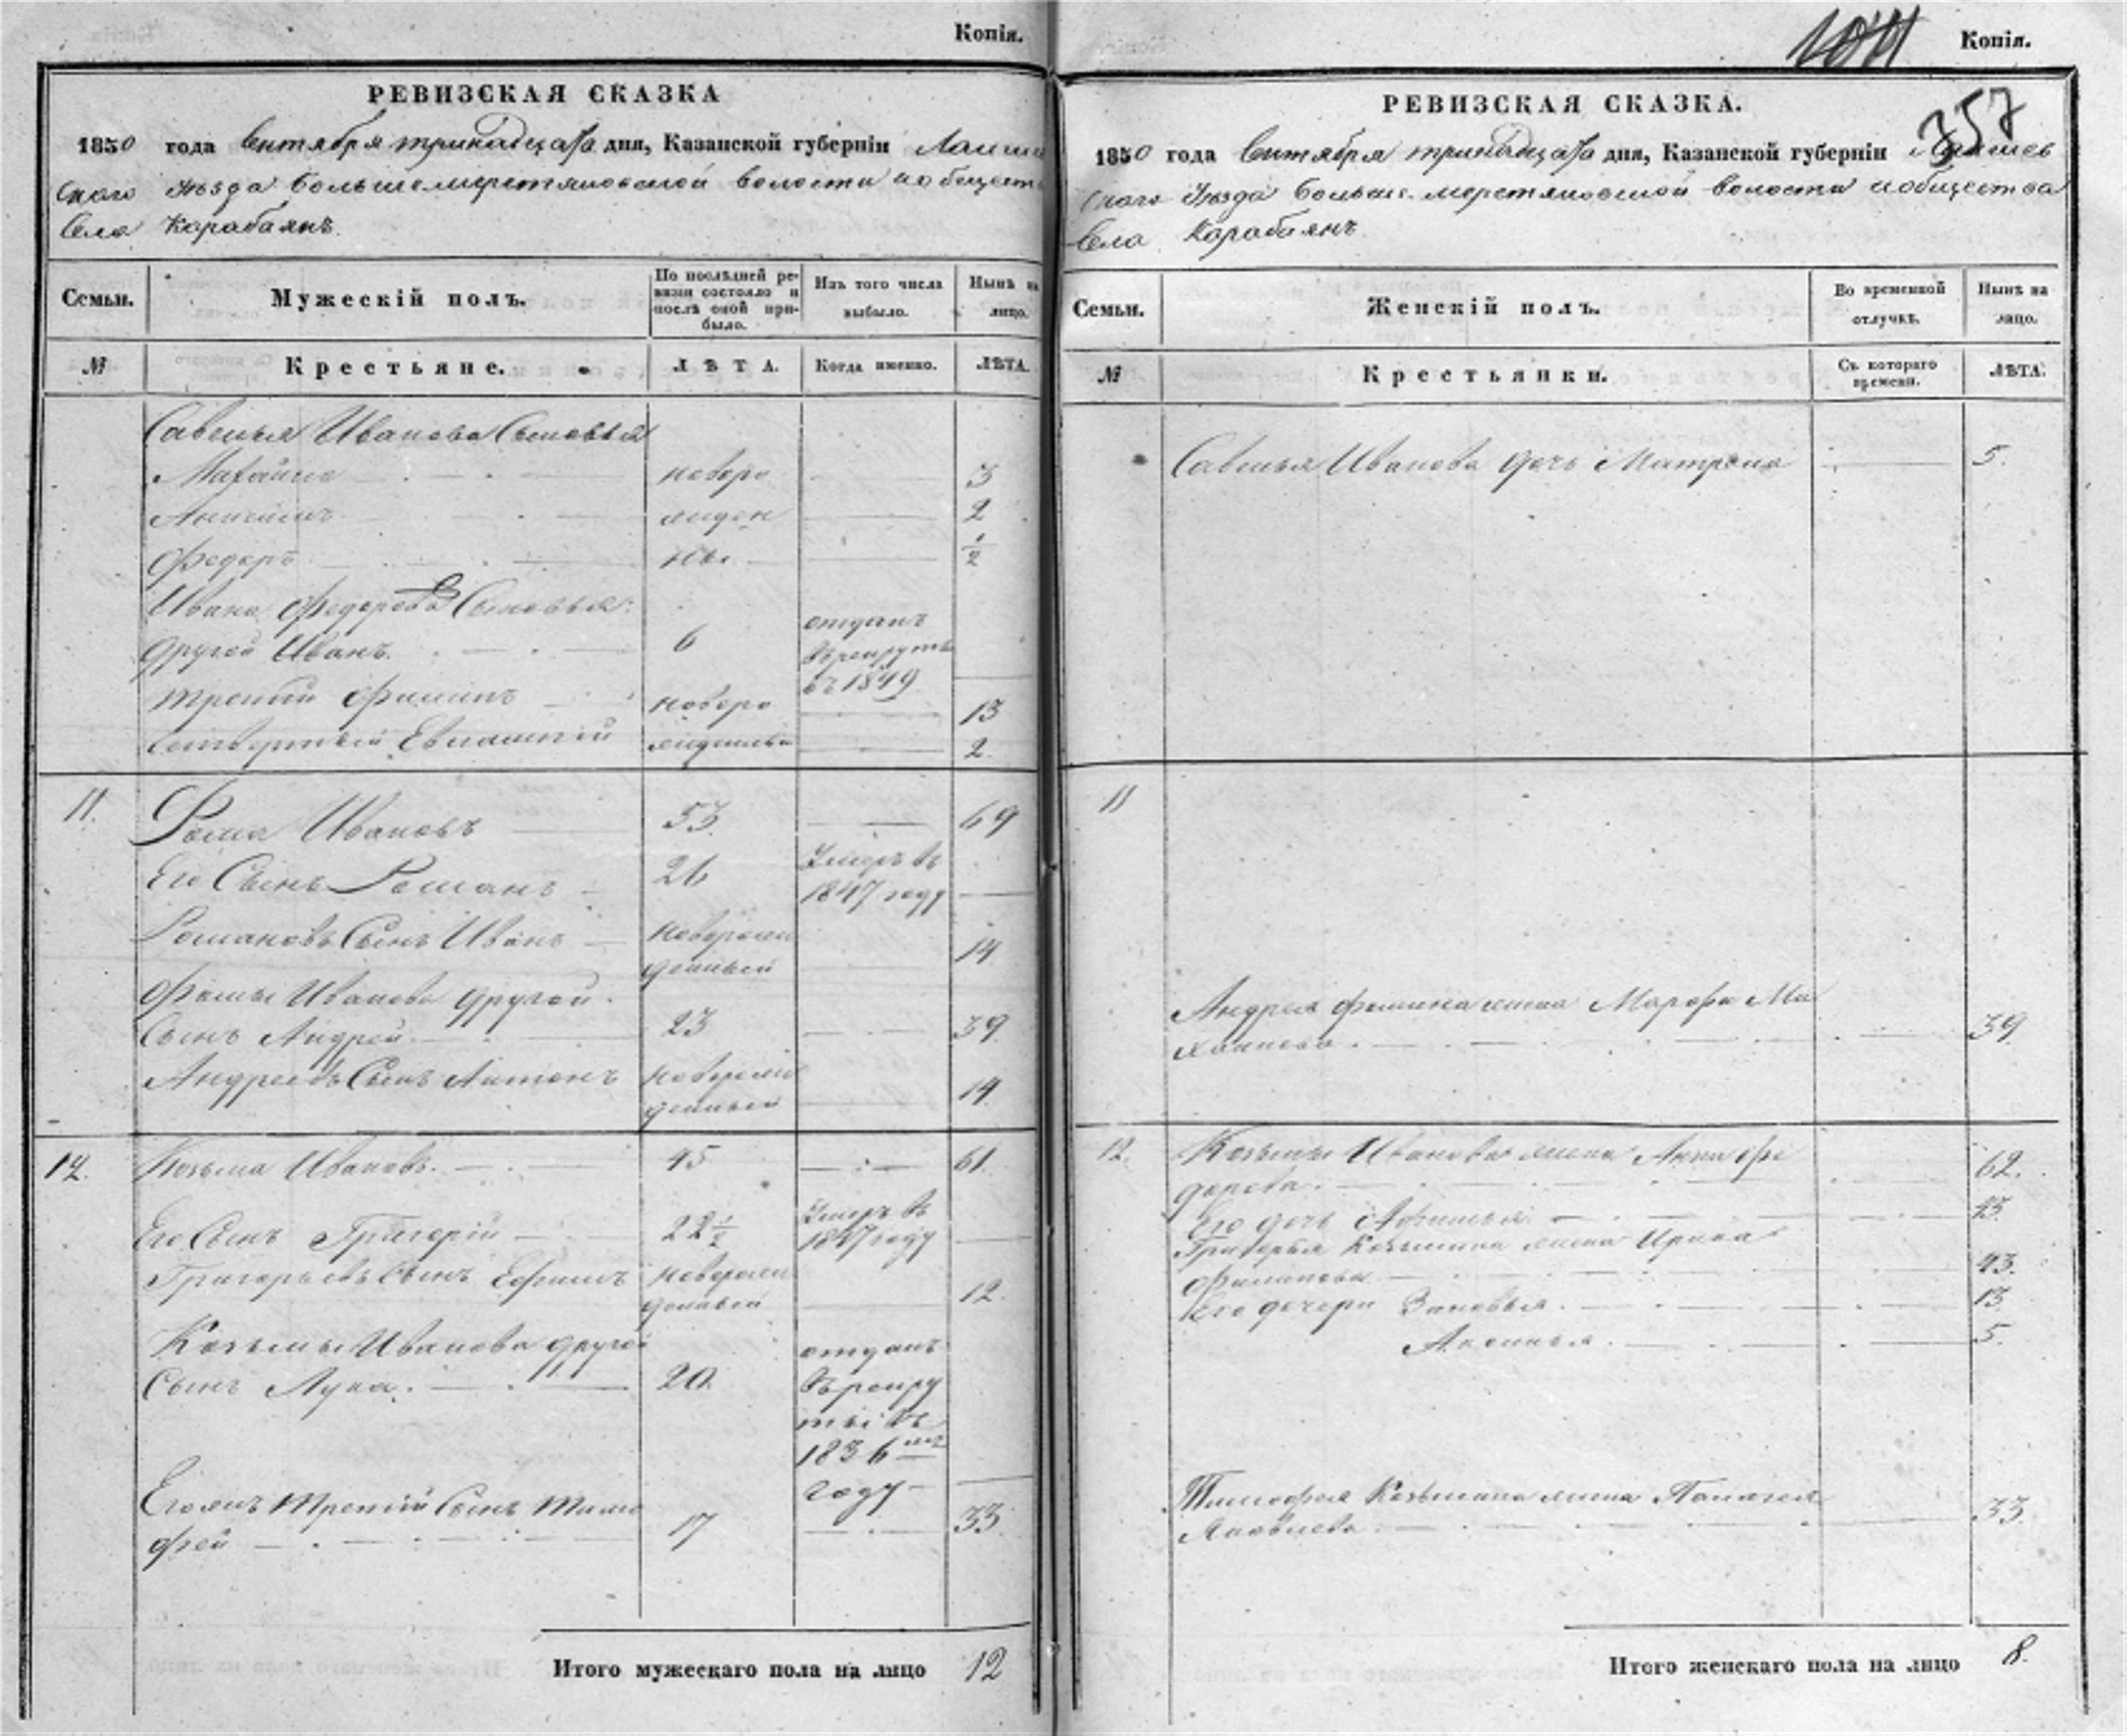 Копія.
РЕВИЗСКАЯ СКАЗКА
1850 года Сентября тринадцатаго дня, Казанской губерніи Лаишев
скаго Уѣзда Большемеретяковской волости и общества
села Карабаянъ.
Семьи.
Мужескій полъ.
По послѣдней ре-
визіи состояло и
послѣ оной при-
было.
Изъ того числа
выбыло.
Нынѣ на
лицо.
№
Крестьяне.
ЛѢТА.
Когда именно.
ЛѢТА.
Савелья Иванова Сыновья
новоро 3
2
Федоръ 1/2
Ивана Федорова Сыновья:
другой Иванъ. 6 отданъ
въ рекруты
въ 1849
третій Филипъ новоро 13
четвертый Евпатій жденный 2
11. Фома Ивановъ 53 69
Его Сынъ Романъ 26 Умеръ въ
1847 году
Романовъ Сынъ Иванъ новорож
денный 14
Фомы Иванова другой
Сынъ Андрей 23 39
Андреевъ Сынъ Антонъ новорож
денный 14
12. Козьма Ивановъ. 45 61
Его Сынъ Григорій 22 1/2 Умеръ въ
1847 году
Григорьевъ Сынъ Ефимъ новорож
денный 12.
Козьмы Иванова другой отданъ
Сынъ Лука. 20 въ рекру
ты въ
1836 мъ
году
Его же третій Сынъ Тимо
фей 17 33.
Итого мужескаго пола на лицо 12
Копія.
357
РЕВИЗСКАЯ СКАЗКА.
1850 года Сентября тринадцатаго дня, Казанской губерніи Лаишев
скаго Уѣзда Больше-меретяковской волости и общества
Села Карабаянъ
Семьи.
Женскій полъ.
Во временной
отлучкѣ.
Нынѣ на
лицо.
№
Крестьянки.
Съ котораго
времени.
ЛѢТА.
Савелья Иванова дочь Матрена 5.
11
Андрея Фомина жена Марфа Ми
хайлова. 39
12. Козьмы Иванова жена Анна Фе
дорова. 62.
Его дочь 23
Григорья Козьмина жена Ирина
Филипова 43.
Его дочери Зиновья. 13.
Аксинья. 5.
Тимофея Козьмина жена Пелагея
Яковлева 33.
Итого женскаго пола на лицо 8.